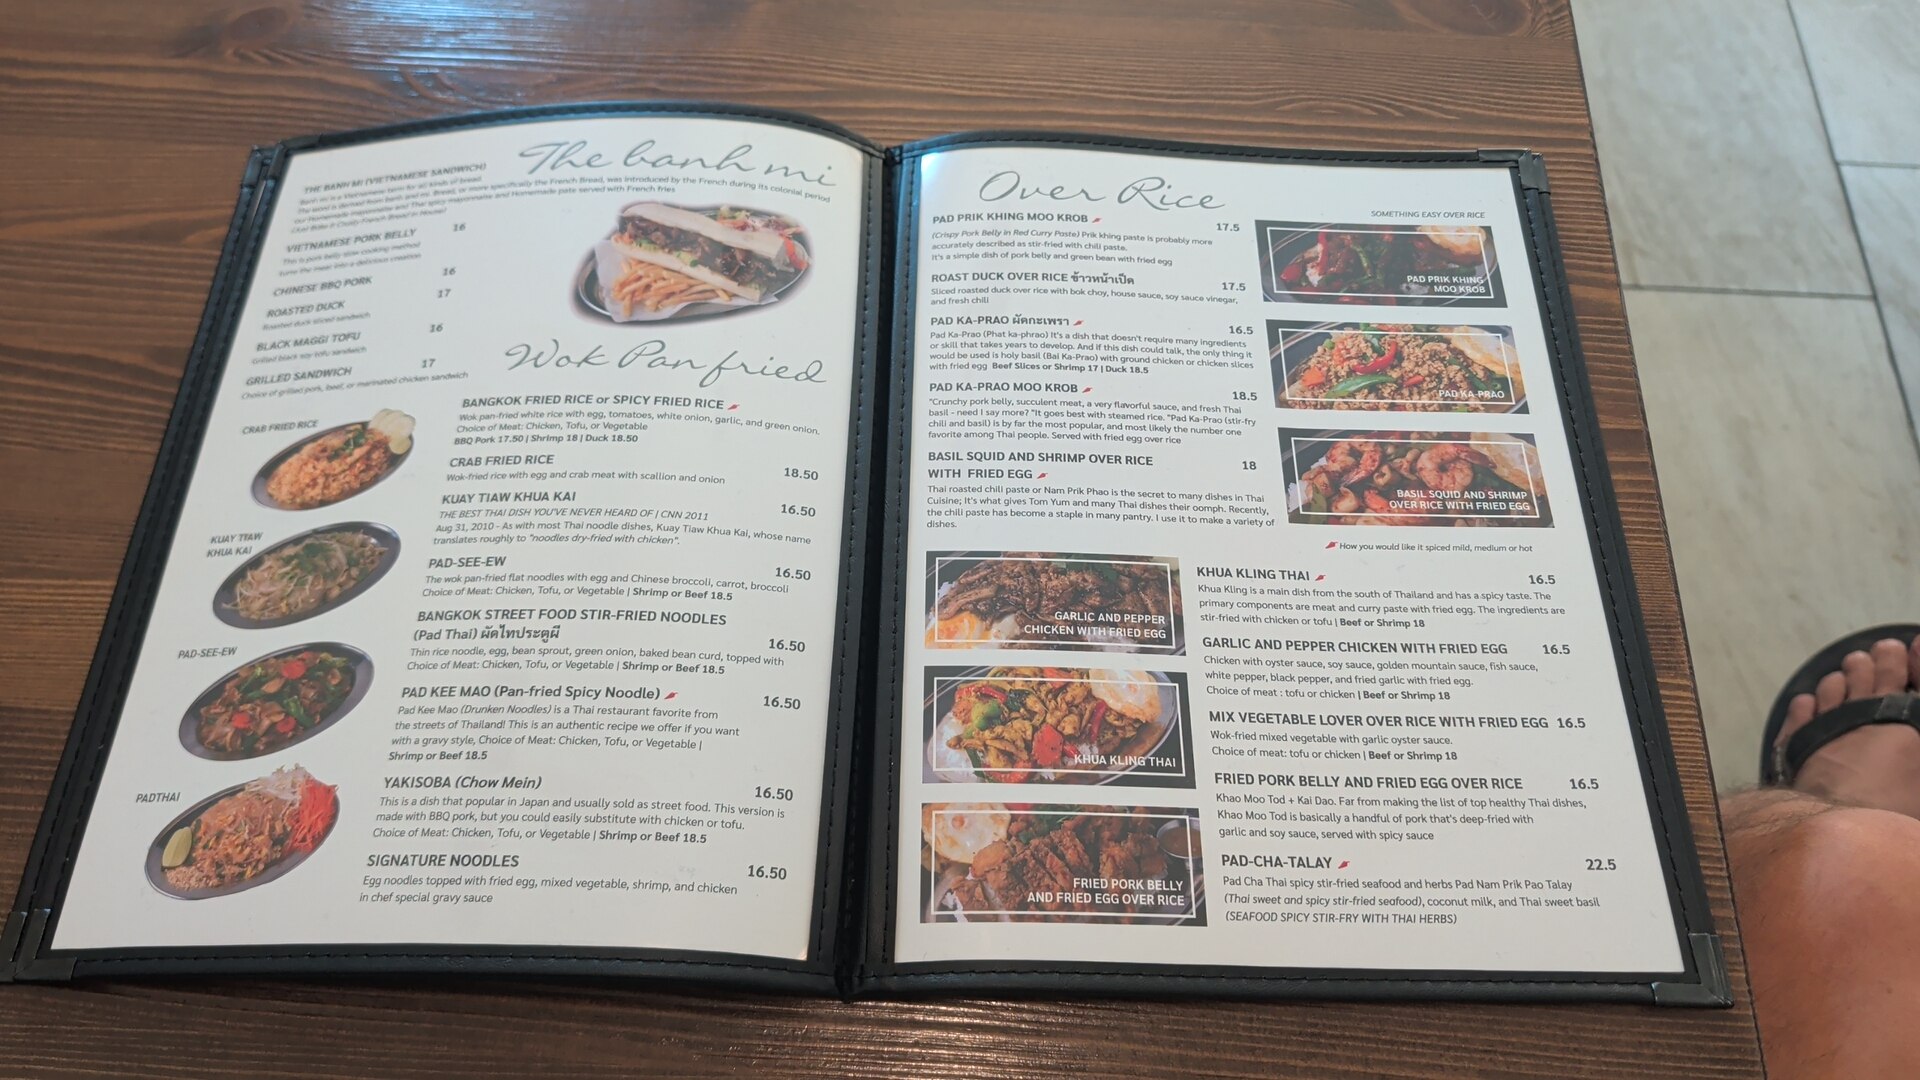 The banh mi
THE BANH MI (VIETNAMESE SANDWICH)
Banh mi is a Vietnamese term for all kinds of bread.
The word is derived from banh and mi. Bread, or more specifically the French Bread, was introduced by the French during its colonial period
our Homemade mayonnaise and Thai spicy mayonnaise and Homemade pate served with French fries
(Our Bake it Crusty-French Bread in House)
VIETNAMESE PORK BELLY 16
This is pork belly slow cooking method
turns the meat into a delicious creation
CHINESE BBQ PORK 16
ROASTED DUCK 17
Roasted duck sliced sandwich
BLACK MAGGI TOFU 16
Grilled black soy tofu sandwich
GRILLED SANDWICH 17
Choice of grilled pork, beef, or marinated chicken sandwich
Wok Pan fried
CRAB FRIED RICE
KUAY TIAW
KHUA KAI
PAD-SEE-EW
PADTHAI
BANGKOK FRIED RICE or SPICY FRIED RICE
Wok pan-fried white rice with egg, tomatoes, white onion, garlic, and green onion.
Choice of Meat: Chicken, Tofu, or Vegetable
BBQ Pork 17.50 | Shrimp 18 | Duck 18.50
CRAB FRIED RICE 18.50
Wok-fried rice with egg and crab meat with scallion and onion
KUAY TIAW KHUA KAI 16.50
THE BEST THAI DISH YOU'VE NEVER HEARD OF | CNN 2011
Aug 31, 2010 - As with most Thai noodle dishes, Kuay Tiaw Khua Kai, whose name
translates roughly to "noodles dry-fried with chicken".
PAD-SEE-EW 16.50
The wok pan-fried flat noodles with egg and Chinese broccoli, carrot, broccoli
Choice of Meat: Chicken, Tofu, or Vegetable | Shrimp or Beef 18.5
BANGKOK STREET FOOD STIR-FRIED NOODLES
(Pad Thai) ผัดไทประตูผี 16.50
Thin rice noodle, egg, bean sprout, green onion, baked bean curd, topped with
Choice of Meat: Chicken, Tofu, or Vegetable | Shrimp or Beef 18.5
PAD KEE MAO (Pan-fried Spicy Noodle) 16.50
Pad Kee Mao (Drunken Noodles) is a Thai restaurant favorite from
the streets of Thailand! This is an authentic recipe we offer if you want
with a gravy style, Choice of Meat: Chicken, Tofu, or Vegetable |
Shrimp or Beef 18.5
YAKISOBA (Chow Mein) 16.50
This is a dish that popular in Japan and usually sold as street food. This version is
made with BBQ pork, but you could easily substitute with chicken or tofu.
Choice of Meat: Chicken, Tofu, or Vegetable | Shrimp or Beef 18.5
SIGNATURE NOODLES 16.50
Egg noodles topped with fried egg, mixed vegetable, shrimp, and chicken
in chef special gravy sauce
Over Rice
SOMETHING EASY OVER RICE
PAD PRIK KHING MOO KROB 17.5
(Crispy Pork Belly in Red Curry Paste) Prik khing paste is probably more
accurately described as stir-fried with chili paste.
It's a simple dish of pork belly and green bean with fried egg
ROAST DUCK OVER RICE ข้าวหน้าเป็ด 17.5
Sliced roasted duck over rice with bok choy, house sauce, soy sauce vinegar,
and fresh chili
PAD KA-PRAO ผัดกะเพรา 16.5
Pad Ka-Prao (Phat ka-phrao) It's a dish that doesn't require many ingredients
or skill that takes years to develop. And if this dish could talk, the only thing it
would be used is holy basil (Bai Ka-Prao) with ground chicken or chicken slices
with fried egg Beef Slices or Shrimp 17 | Duck 18.5
PAD KA-PRAO MOO KROB 18.5
"Crunchy pork belly, succulent meat, a very flavorful sauce, and fresh Thai
basil - need I say more? "It goes best with steamed rice. "Pad Ka-Prao (stir-fry
chili and basil) is by far the most popular, and most likely the number one
favorite among Thai people. Served with fried egg over rice
BASIL SQUID AND SHRIMP OVER RICE 18
WITH FRIED EGG
Thai roasted chili paste or Nam Prik Phao is the secret to many dishes in Thai
Cuisine; it's what gives Tom Yum and many Thai dishes their oomph. Recently,
the chili paste has become a staple in many pantry. I use it to make a variety of
dishes.
PAD PRIK KHING
MOO KROB
PAD KA-PRAO
BASIL SQUID AND SHRIMP
OVER RICE WITH FRIED EGG
How you would like it spiced mild, medium or hot
GARLIC AND PEPPER
CHICKEN WITH FRIED EGG
KHUA KLING THAI
FRIED PORK BELLY
AND FRIED EGG OVER RICE
KHUA KLING THAI 16.5
Khua Kling is a main dish from the south of Thailand and has a spicy taste. The
primary components are meat and curry paste with fried egg. The ingredients are
stir-fried with chicken or tofu | Beef or Shrimp 18
GARLIC AND PEPPER CHICKEN WITH FRIED EGG 16.5
Chicken with oyster sauce, soy sauce, golden mountain sauce, fish sauce,
white pepper, black pepper, and fried garlic with fried egg.
Choice of meat : tofu or chicken | Beef or Shrimp 18
MIX VEGETABLE LOVER OVER RICE WITH FRIED EGG 16.5
Wok-fried mixed vegetable with garlic oyster sauce.
Choice of meat: tofu or chicken | Beef or Shrimp 18
FRIED PORK BELLY AND FRIED EGG OVER RICE 16.5
Khao Moo Tod + Kai Dao. Far from making the list of top healthy Thai dishes,
Khao Moo Tod is basically a handful of pork that's deep-fried with
garlic and soy sauce, served with spicy sauce
PAD-CHA-TALAY 22.5
Pad Cha Thai spicy stir-fried seafood and herbs Pad Nam Prik Pao Talay
(Thai sweet and spicy stir-fried seafood), coconut milk, and Thai sweet basil
(SEAFOOD SPICY STIR-FRY WITH THAI HERBS)